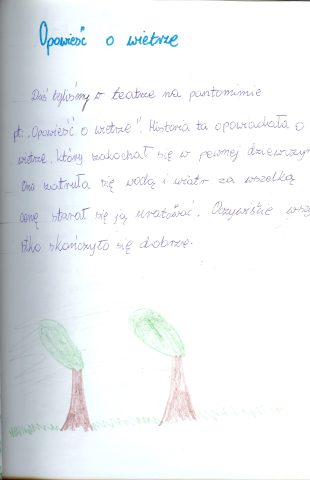 Opowieść o wietrze
Dziś byliśmy w teatrze na pantomimie
pt. „Opowieść o wietrze". Historia ta opowiadała o
wietrze, który zakochał się w pewnej dziewczyn
Ona zatruła się wodą i wiatr za wszelką
cenę starał się ją uratować. Oczywiście wszy
stko skończyło się dobrze.